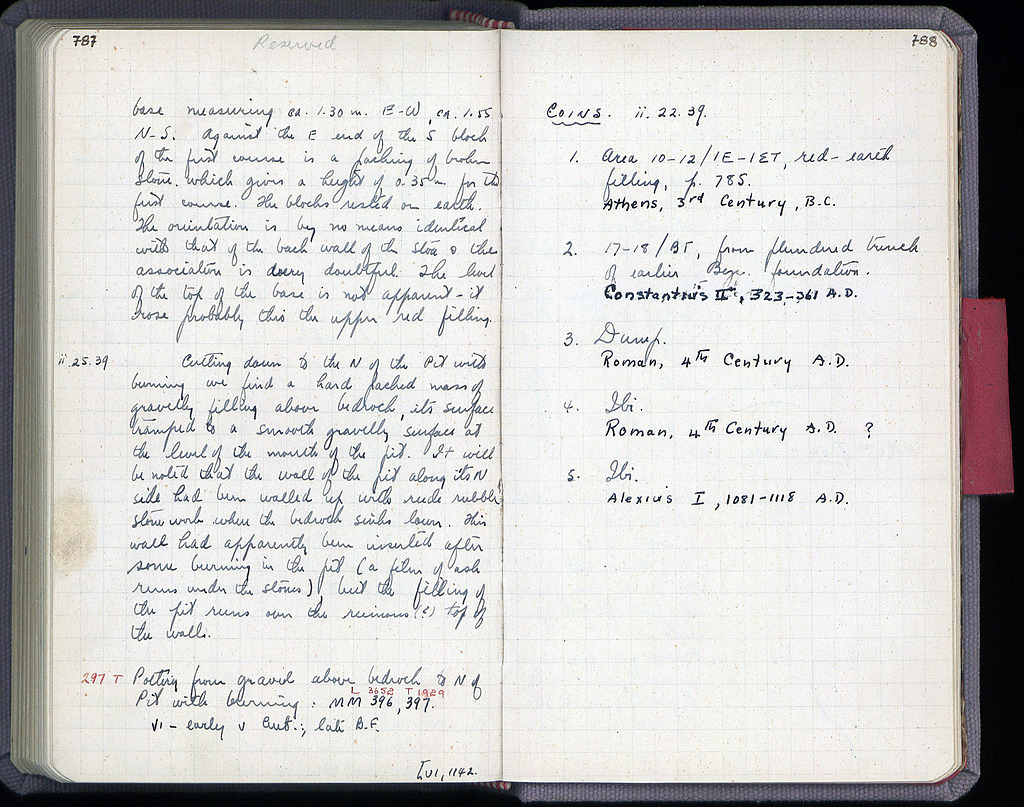 787
Reserved
base measuring ca. 1.30 m. E-W, ca. 1.55
N-S. Against the E end of the S block
of the first course is a packing of broken
stone. which gives a height of 0.35 m. for the
first course. The blocks rested on earth.
The orientation is by no means identical
with that of the back wall of the stoa & the
association is very doubtful. The level
of the top of the base is not apparent - it
rose probably thro the upper red filling.
ii.25.39 Cutting down to the N of the Pit with
burning we find a hard packed mass of
gravelly filling above bedrock, its surface
tramped to a smooth gravelly surface at
the level of the mouth of the pit. It will
be noted that the wall of the pit along its N
side had been walled up with rude rubble
stone work where the bedrock sinks down. This
wall had apparently been inserted after
some burning in the pit (a film of ash
runs under the stones), but the filling of
the pit runs over the ruinous (?) top of
the walls.
297 T Pottery from gravel above bedrock to N of
L 3652 T 1929
Pit with burning: MM 396, 397.
VI - early V Cent.; late B.F.
1142.
788
COINS. ii. 22. 39.
1. Area 10-12/IE-IET, red-earth
filling, p. 785.
Athens, 3rd Century, B.C.
2. 17-18/BT, from plundered trench
of earlier Byz. foundation.
Constantius II, 323-361 A.D.
3. Dump.
Roman, 4th Century A.D.
4. Ibi.
Roman, 4th Century A.D. ?
5. Ibi.
Alexius I, 1081-1118 A.D.